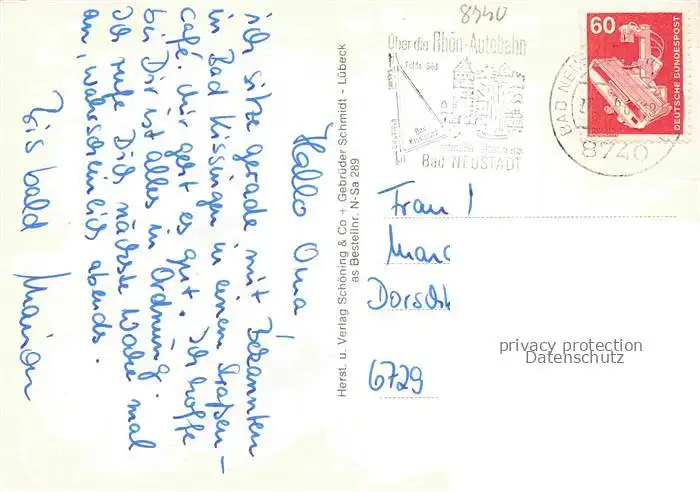 Hallo Oma!
ich sitze gerade mit Bekannten
in Bad Kissingen in einem Straßen-
café. Mir geht es gut. Ich hoffe
bei Dir ist alles in Ordnung.
Ich rufe Dich nächste Woche mal
an, wahrscheinlich abends.
Bis bald Marion
Herst. u. Verlag Schöning & Co + Gebrüder Schmidt - Lübeck
as Bestellnr. N-Sa 289
8740
Über die Rhön-Autobahn
Fulda Süd
Bad
Bad NEUSTADT
BAD NEU
8740
60
DEUTSCHE BUNDESPOST
Frau
Marg
Dorsch
6729
privacy protection
Datenschutz